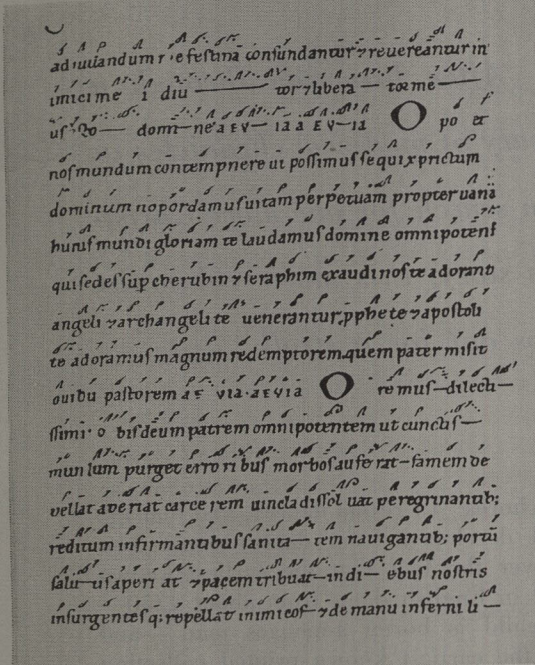 adiuuandum festina confundantur ⁊ reuereantur
inimici me i diu — tor ⁊ libera — tor mē —
us — domi — ne aeu — ia a eu — ia O po et
nos mundum contempnere ut possimus sequi xpictum
dominum no pordamus uitam perpetuam propter uana
huius mundi gloriam te laudamus domine omnipotens
qui sedes sup cherubin ⁊ seraphim exaudi nos te adorant
angeli ⁊ archangeli te uenerantur pphete ⁊ apostoli
te adoramus magnum redemptorem quem pater misit
ouibu pastorem ae uia · aeuia O remus — dilecti —
ssimi · o bis deum patrem omnipotentem ut cunctis —
mundum purget erroribus morbos auferat — famem de
pellat aperiat carcerem uincla dissoluat peregrinantib;
reditum infirmantibus sanita — tem nauigantib; portū
salu — us aperi at ⁊ pacem tribuat — in di — ebus nostris
insurgentesq; repellat inimicos — ⁊ de manu inferni li —